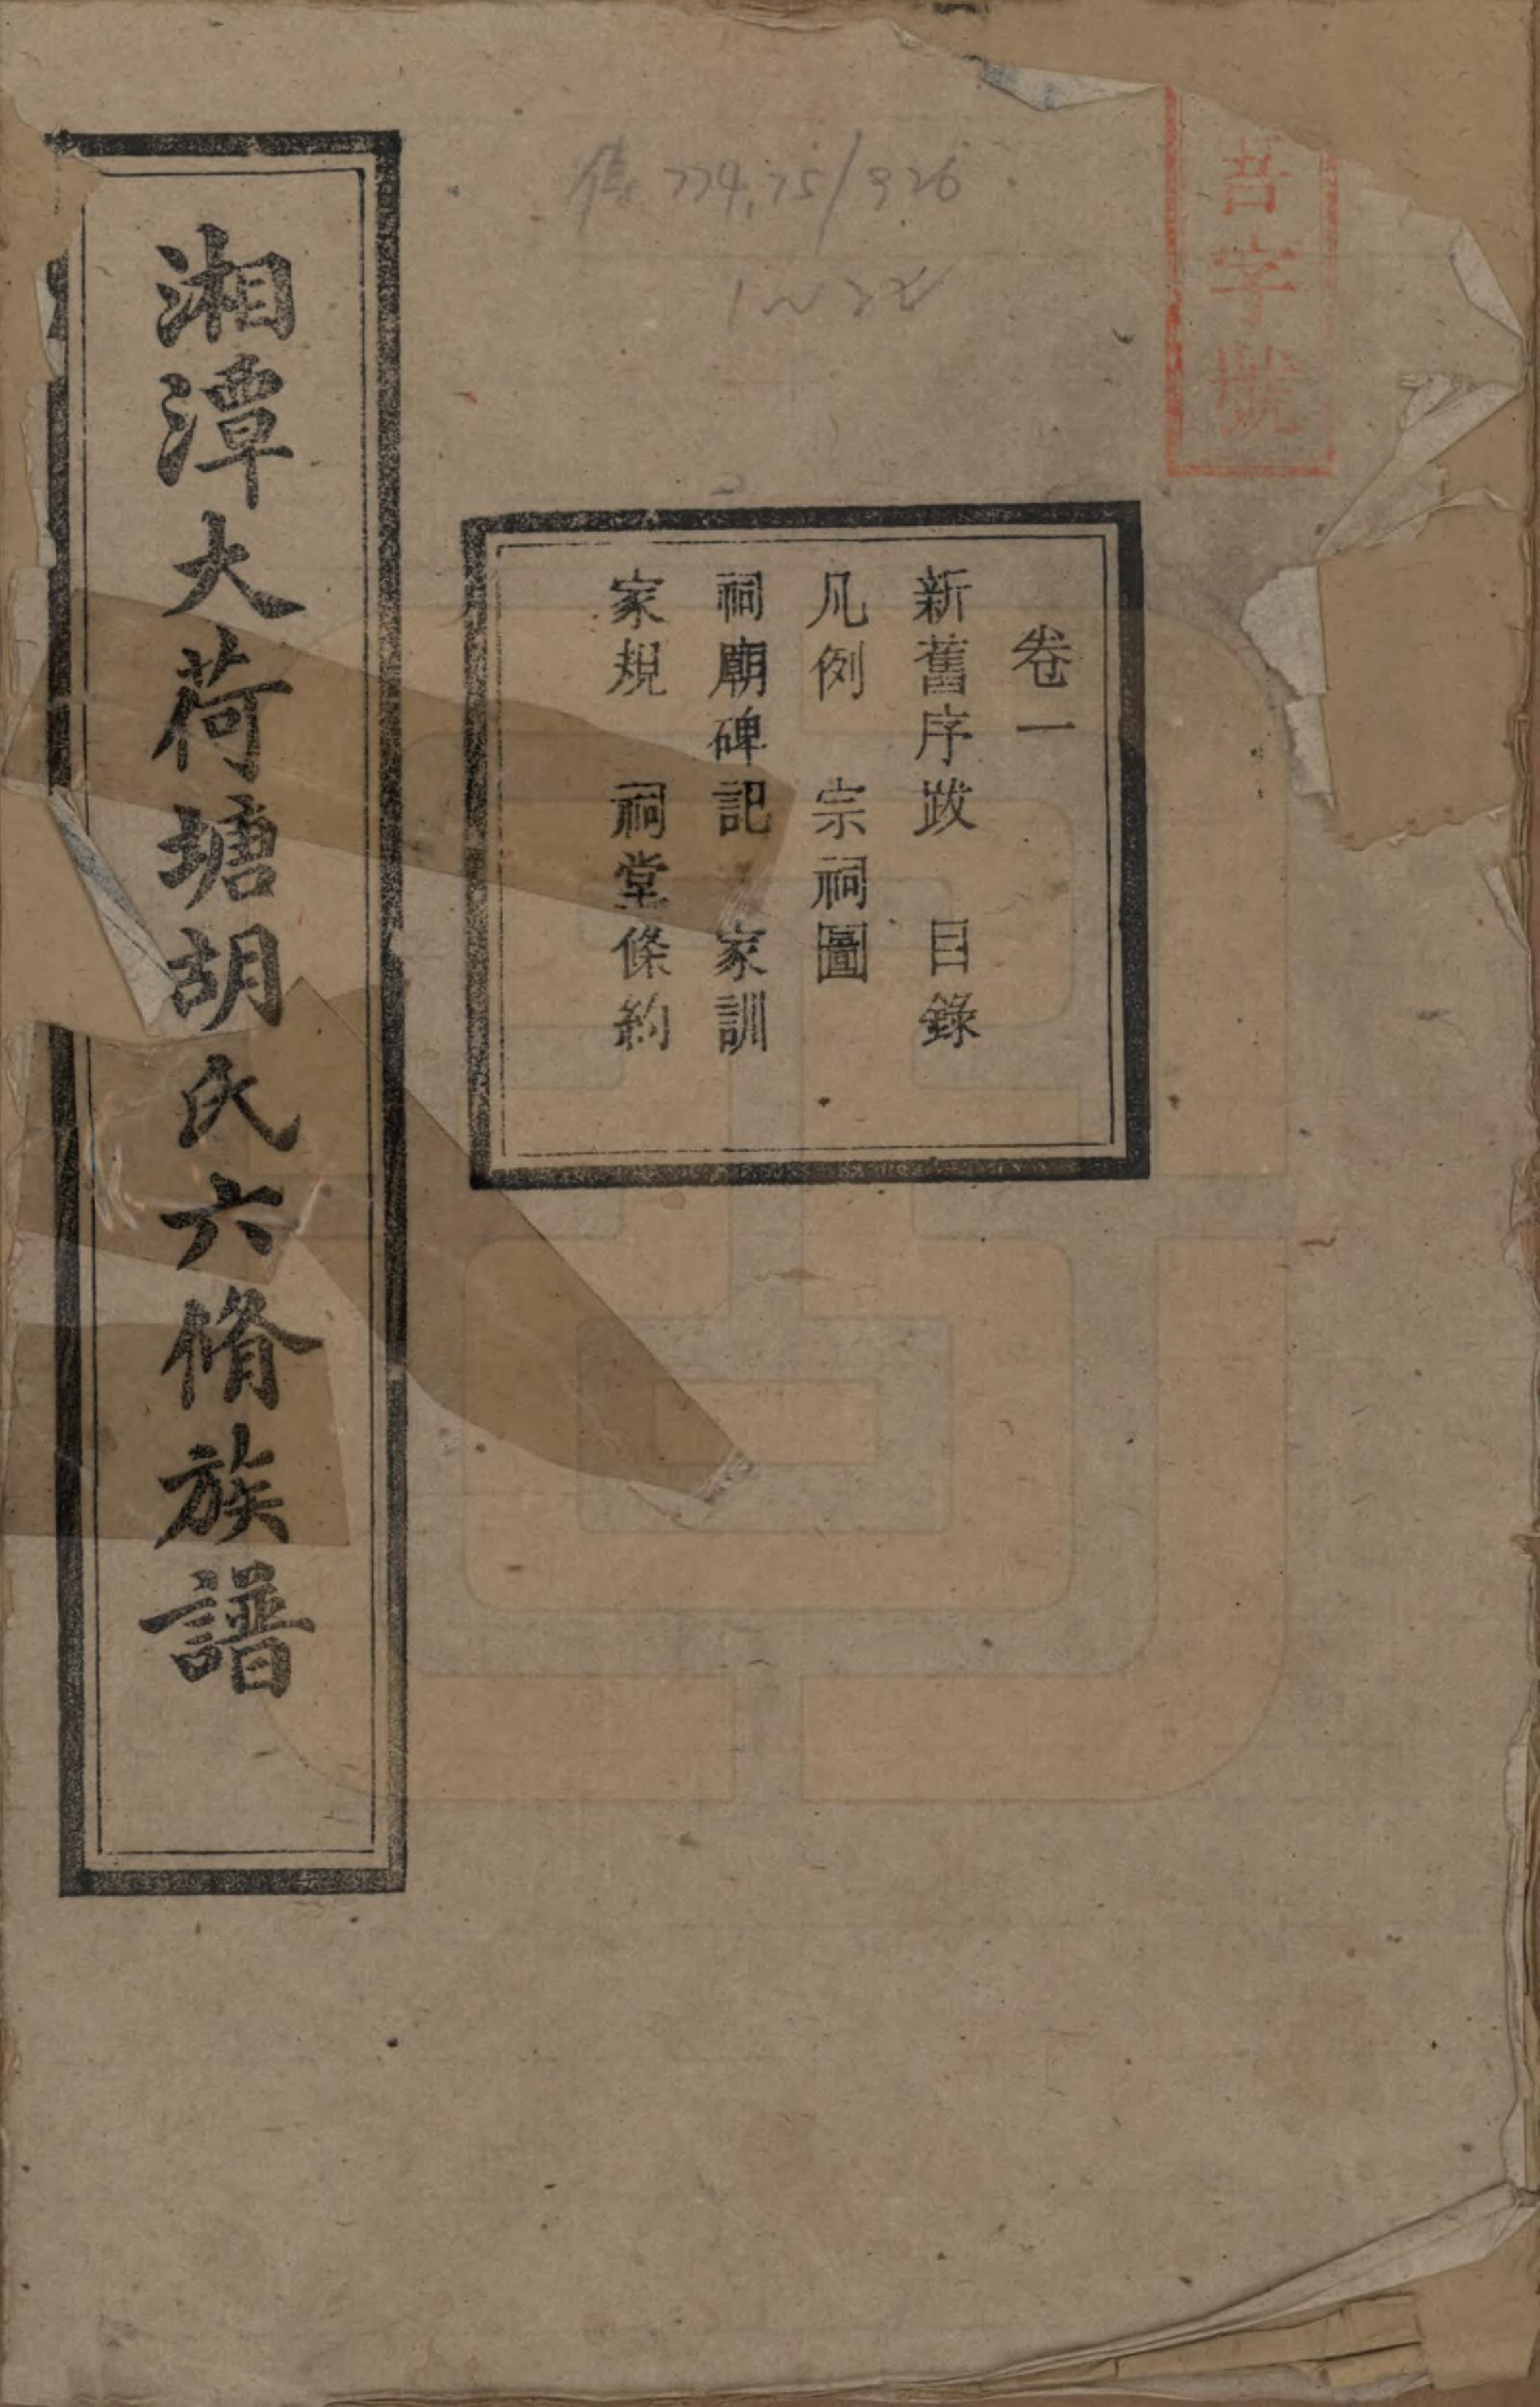 字號
傳 774.75/926
1~22
卷一
新舊序跋　目錄
凡例　宗祠圖
祠廟碑記　家訓
家規　祠堂條約
湘潭大荷塘胡氏六脩族譜